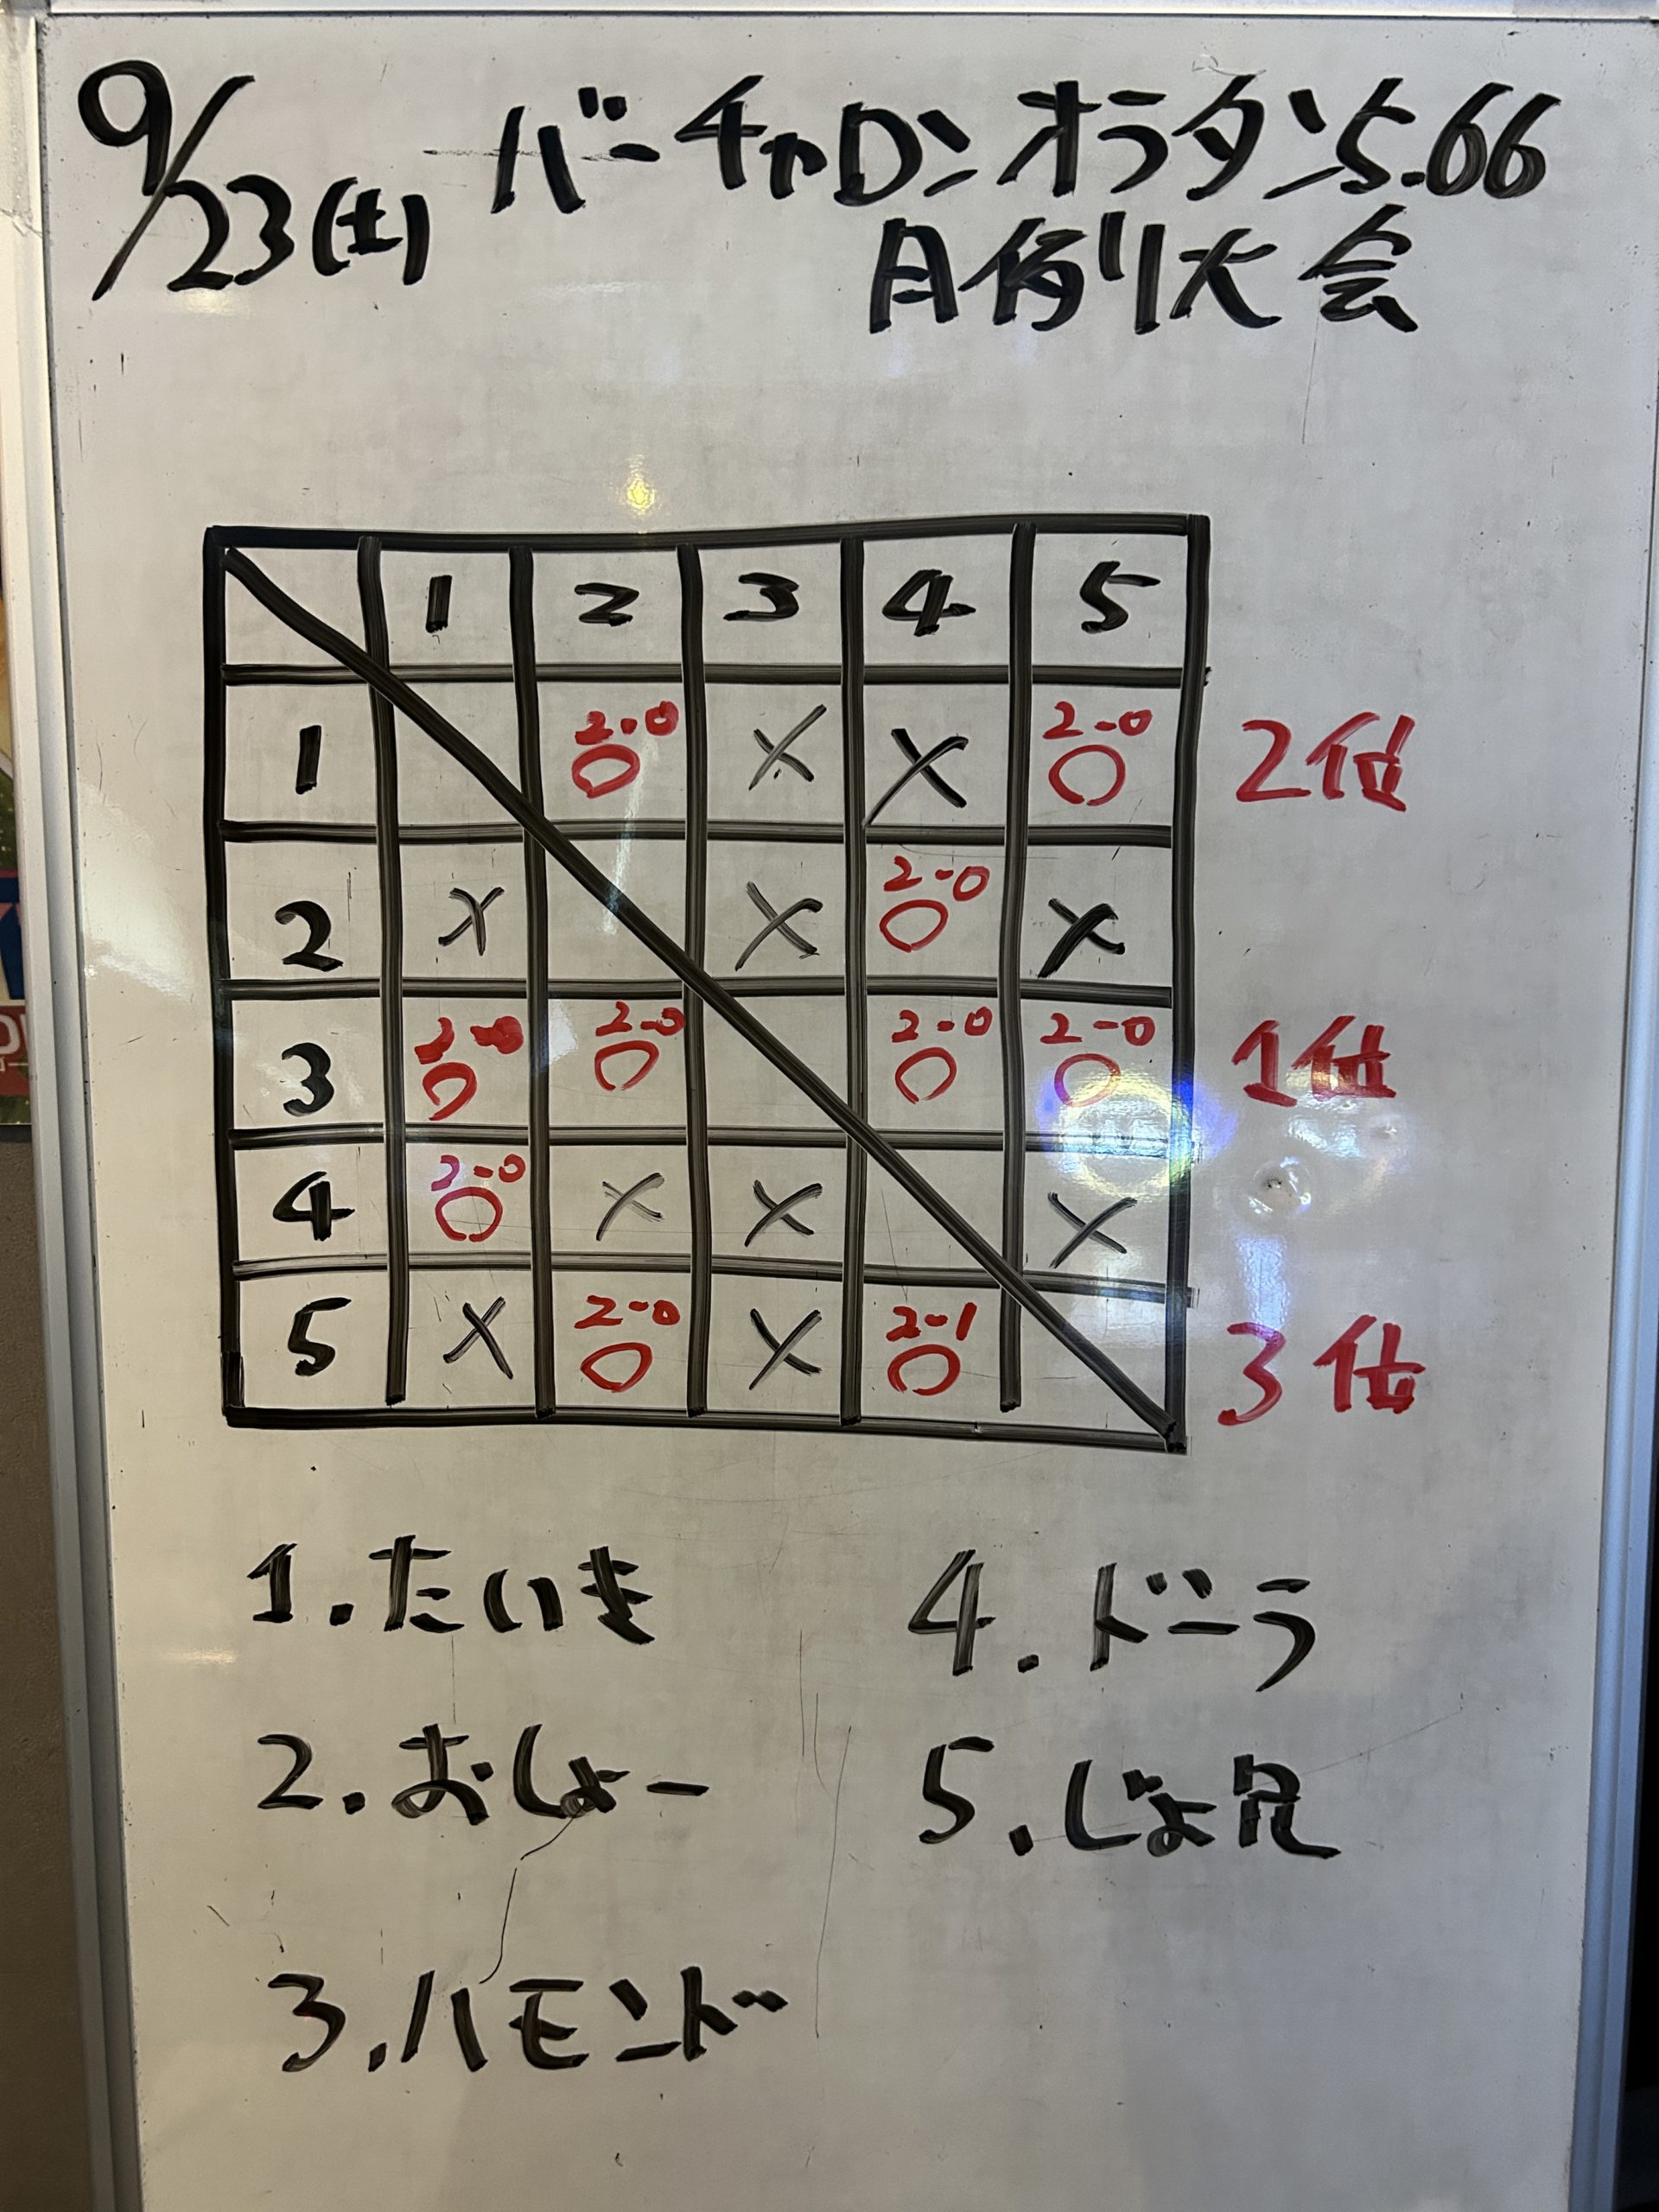 9/23(土) バーチャロンオラタン5.66
月例大会
1 2 3 4 5
1 2-0 ○ × × 2-0 ○ 2位
2 × × 2-0 ○ ×
3 2-0 ○ 2-0 ○ 2-0 ○ 2-0 ○ 1位
4 2-0 ○ × × ×
5 × 2-0 ○ × 2-1 ○ 3位
1.たいき
2.おしょー
3.ハモンド
4.ドーラ
5.じょ兄